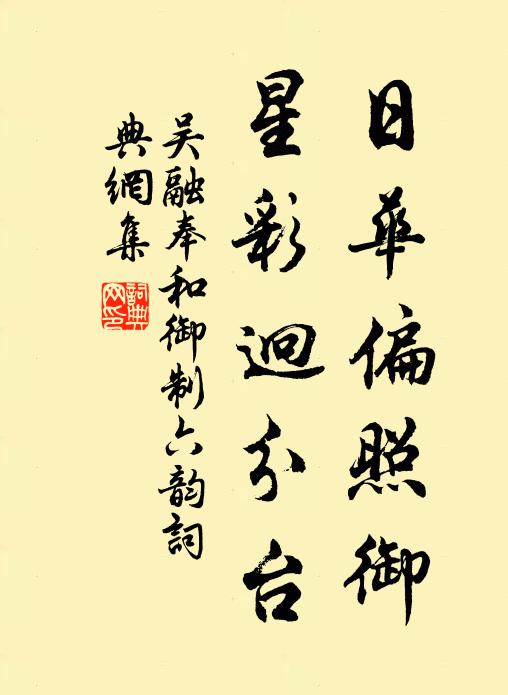 日華偏照御
星彩迥分台
吴融奉和御制六韵詞
典網集
詞典
网印